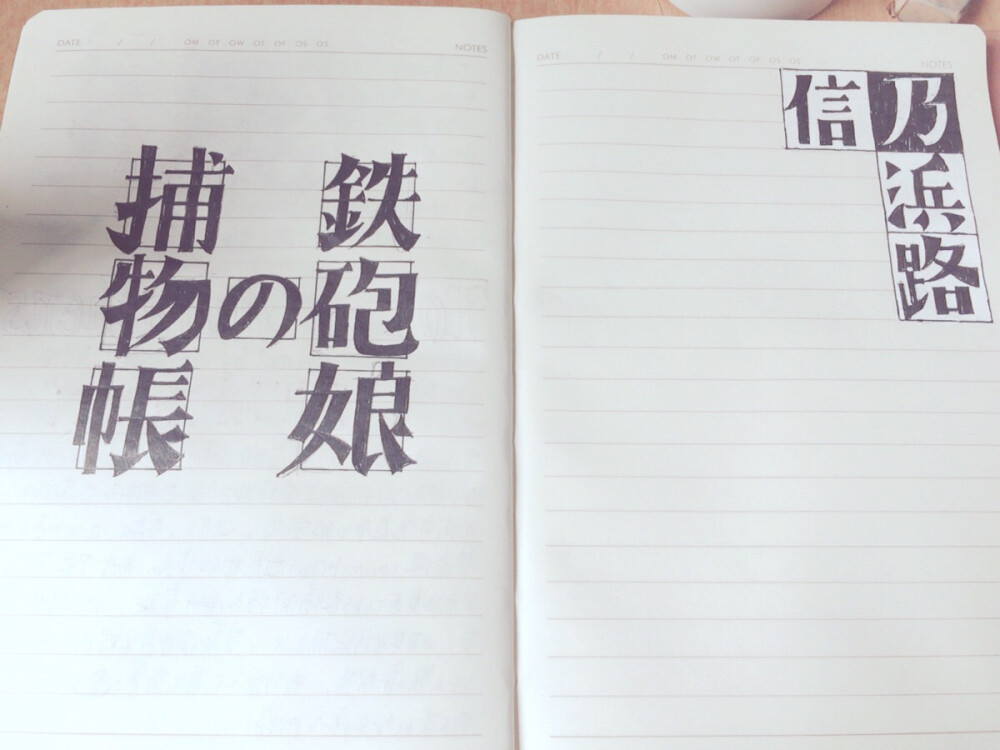 DATE / / OM OT OW OT OF OS OS NOTES
鉄砲娘
の
捕物帳
DATE / / OM OT OW OT OF OS OS NOTES
信乃
浜路